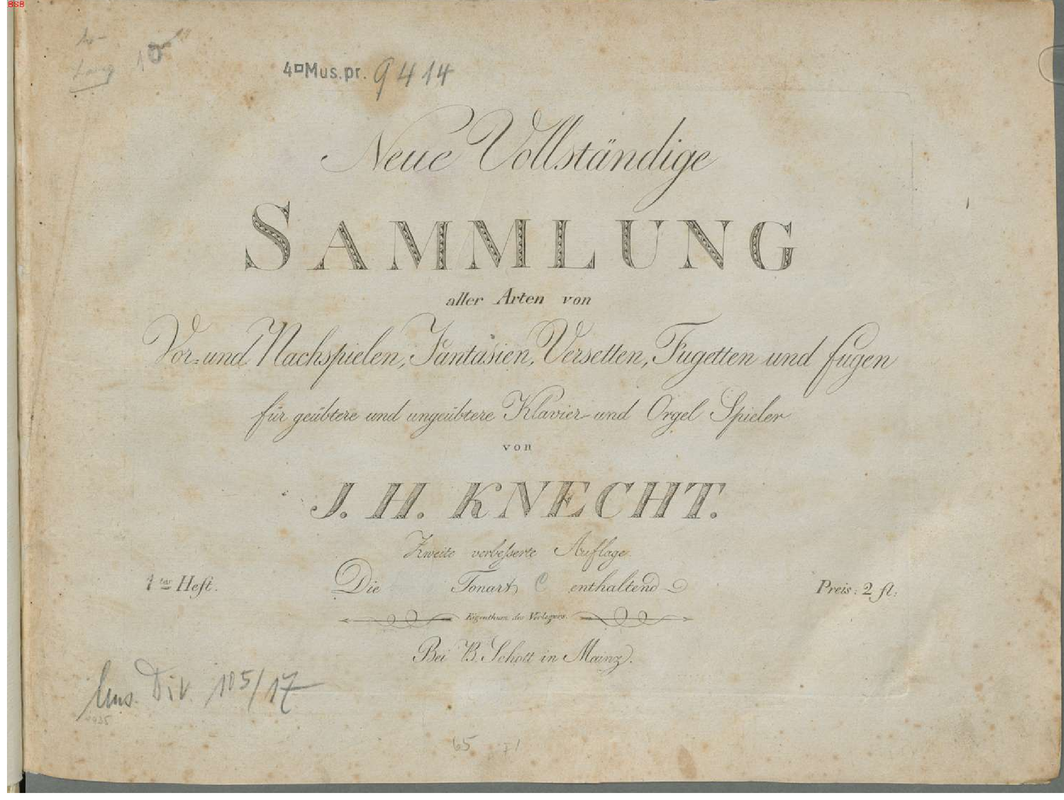 868
10
4□Mus.pr. 9414
Neue Vollständige
SAMMLUNG
aller Arten von
Vor= und Nachspielen, Fantasien, Versetten, Fugetten und fugen
für geübtere und ungeübtere Klavier- und Orgel Spieler
von
J. H. KNECHT.
Zweite verbesserte Auflage
1ter Heft. Die Tonart C enthaltend Preis: 2 fl:
Eigenthum des Verlegers.
Bei B. Schott in Mainz.
Mus. Div. 105/17
65